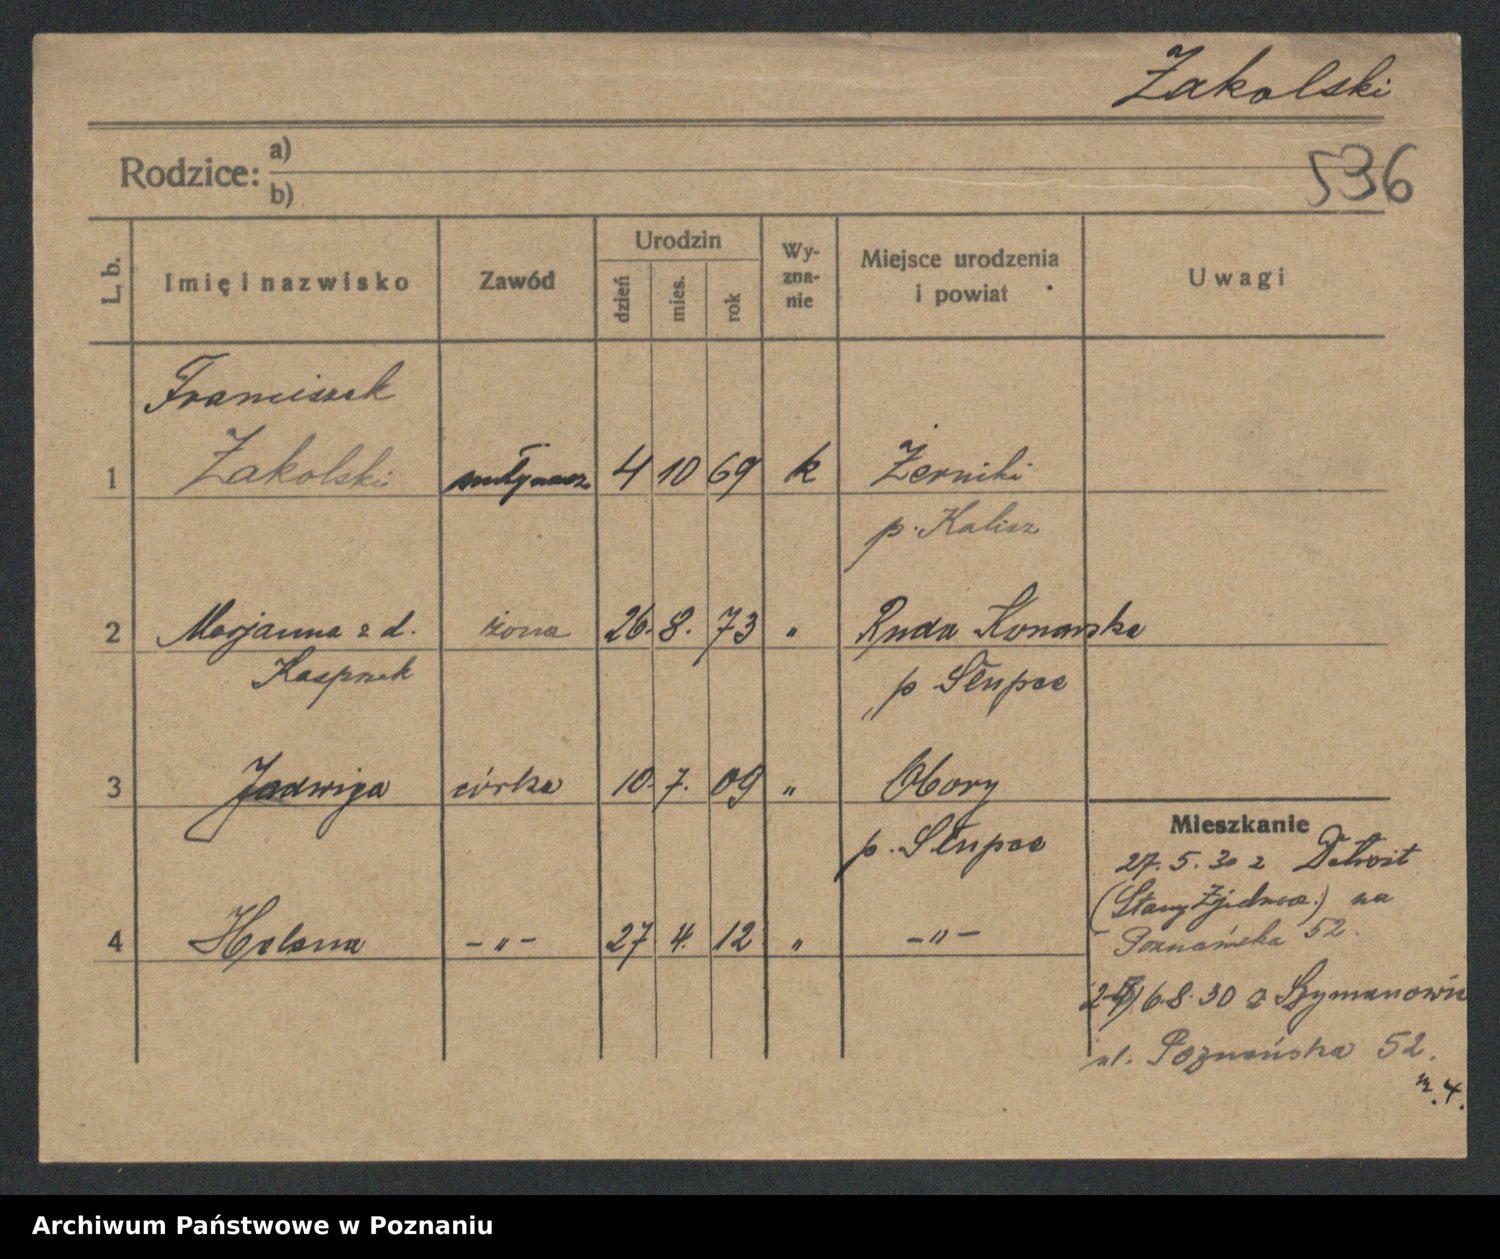 Żakolski
Rodzice: a)
b)
536
L. b. Imię i nazwisko Zawód Urodzin dzień mies. rok Wy-zna-nie Miejsce urodzenia i powiat Uwagi
Franciszek
1 Żakolski młynarz 4 10 69 k Żerniki
p. Kalisz
2 Marjanna z d. żona 26. 8. 73 " Ruda Konarska
Kasprzak p Słupca
3 Jadwiga córka 10. 7. 09 " Obory
p. Słupca
Mieszkanie
27. 5. 30 z Detroit
(Stany Zjednocz.) na
Poznańska 52.
4 Helena -"- 27 4. 12 " -"-
6.8.30 z Szymanowic
ul. Poznańska 52.
m. 4.
Archiwum Państwowe w Poznaniu